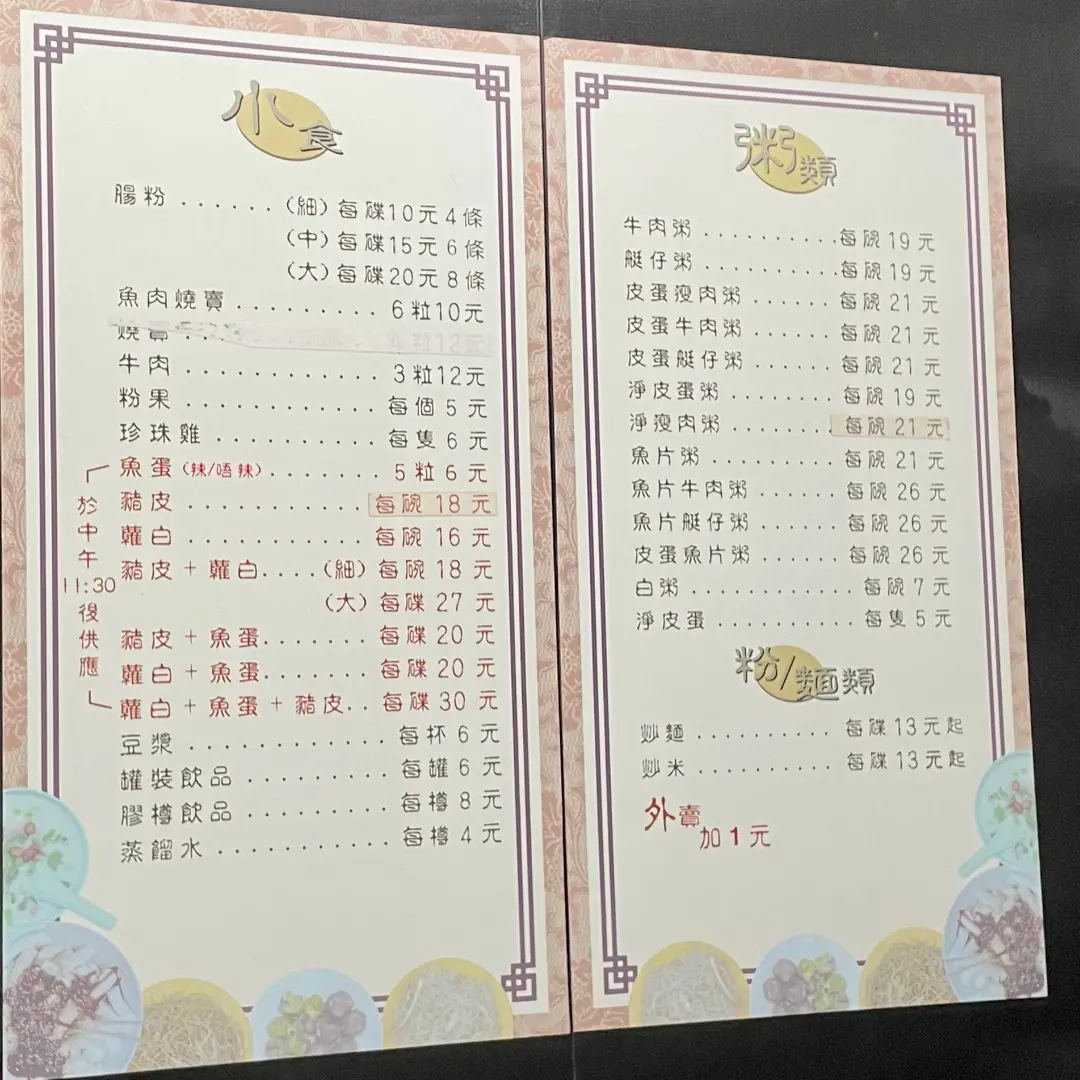 小食
腸粉 ...... (細) 每碟10元 4條
(中) 每碟15元 6條
(大) 每碟20元 8條
魚肉燒賣 ......... 6粒10元
燒賣 粒12元
牛肉 ............ 3粒12元
粉果 ............ 每個 5 元
珍珠雞 .......... 每隻 6 元
魚蛋 (辣/唔辣) ....... 5粒 6 元
豬皮 ........... 每碗 18 元
蘿白 ........... 每碗 16 元
豬皮 + 蘿白.... (細) 每碗 18 元
(大) 每碟 27 元
豬皮 + 魚蛋....... 每碟 20 元
蘿白 + 魚蛋....... 每碟 20 元
蘿白 + 魚蛋 + 豬皮.. 每碟 30 元
於中午11:30後供應
豆漿 ............ 每杯 6 元
罐裝飲品 ......... 每罐 6 元
膠樽飲品 ......... 每樽 8 元
蒸餾水 ........... 每樽 4 元
粥類
牛肉粥 .......... 每碗 19 元
艇仔粥 .......... 每碗 19 元
皮蛋瘦肉粥 ...... 每碗 21 元
皮蛋牛肉粥 ...... 每碗 21 元
皮蛋艇仔粥 ...... 每碗 21 元
淨皮蛋粥 ........ 每碗 19 元
淨瘦肉粥 ........ 每碗 21 元
魚片粥 .......... 每碗 21 元
魚片牛肉粥 ...... 每碗 26 元
魚片艇仔粥 ...... 每碗 26 元
皮蛋魚片粥 ...... 每碗 26 元
白粥 ............ 每碗 7 元
淨皮蛋 .......... 每隻 5 元
粉/麵類
炒麵 .......... 每碟 13 元起
炒米 .......... 每碟 13 元起
外賣
加 1 元